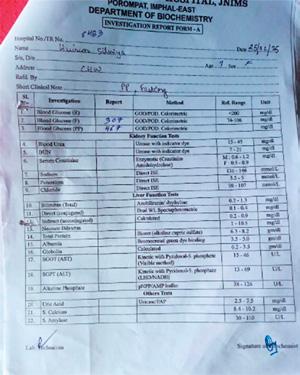 HOSPITAL, JNIMS
POROMPAT, IMPHAL-EAST
DEPARTMENT OF BIOCHEMISTRY
INVESTIGATION REPORT FORM - A
Hospital No/TR No.
Name Date
S/o, D/o
Address Age Sex F
Refd. By
Short Clinical Note
Sl. Investigation Report Method Ref. Range Unit
1. Blood Glucose (R) GOD/POD. Colorimetric <200 mg/dl
2. Blood Glucose (F) 307 GOD/POD. Colorimetric 74-106 mg/dl
3. Blood Glucose (PP) 467 GOD/POD. Colorimetric mg/dl
Kidney Function Tests
4. Blood Urea Urease with indicator dye 15 - 45 mg/dl
5. BUN Urease with indicator dye 7 - 21 mg/dl
6. Serum Creatinine Enzymatic (Creatinine Amidohydrolase) M : 0.8 - 1.2 F : 0.5 - 0.9 mg/dl
7. Sodium Direct ISE mmol/L
8. Potassium Direct ISE
9. Chloride Direct ISE 98 - 107 mmol/L
Liver Function Tests
10. Bilirubin (Total) 0.2 - 1.3 mg/dl
11. Direct (conjugated) Dual WL Spectrophotometric mg/dl
12. Indirect (unconjugated) Calculated mg/dl
13. Neonate Bilirubin mg/dl
14. Total Protein Biuret (alkaline cupric sulfate) 6.3 - 8.2 gm/dl
15. Albumin Bromocresol green dye binding 3.5 - 5.0 gm/dl
16. Globulin Calculated gm/dl
17. SGOT (AST) Kinetic with Pyridoxal-5. phosphate (Visible method) 15 - 46 U/L
18. SGPT (ALT) Kinetic with Pyridoxal-5. phosphate (LHD/NADH) 13 - 69 U/L
19. Alkaline Phosphatase pNPP/AMP buffer 38 - 126 U/L
Others Tests
20. Uric Acid Uricase/PAP 2.5 - 7.5 mg/dl
21. S. Calcium 8.4 - 10.2 mg/dl
22. S. Amylase 30 - 110 U/L
Lab. Technician Signature of Biochemist